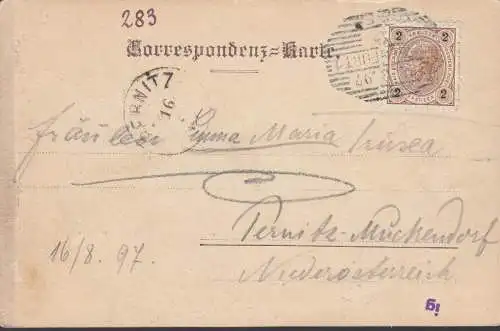 283
Correspondenz=Karte
2 2
2 2
PERNITZ
16
Fräulein Emma Maria
Pernitz-Muckendorf
Niederösterreich
16/8. 97.
ig